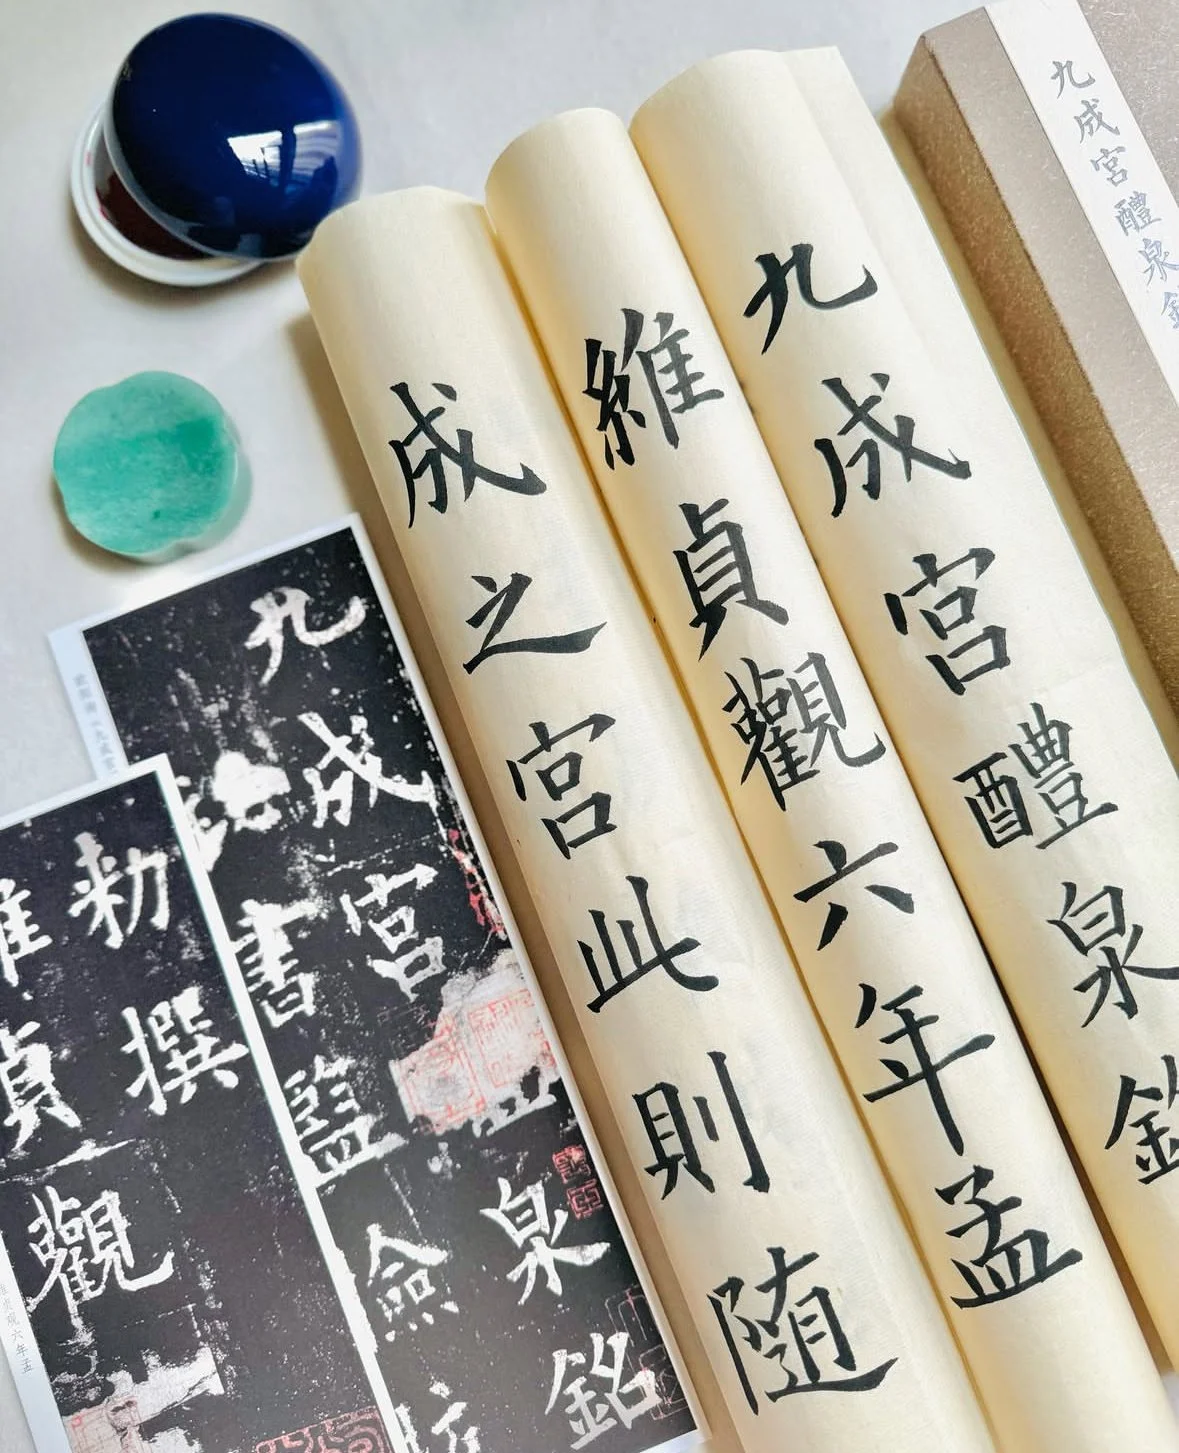 九成宮醴泉銘
九成宮醴泉銘
維貞觀六年孟
成之宮此則随
九成宮
泉銘
書監
僉
勅撰
維
貞
觀
維貞觀六年孟